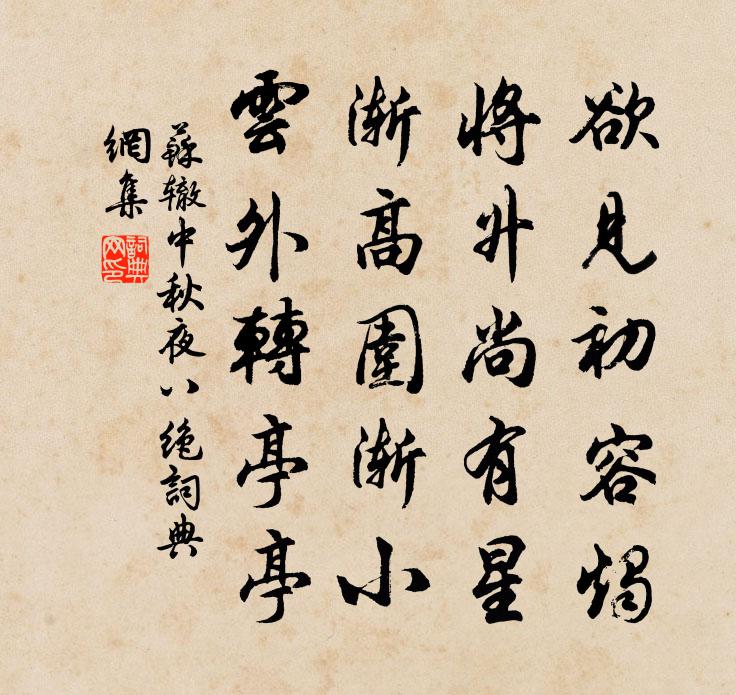 欲見初容燭
將升尚有星
漸高圍漸小
雲外轉亭亭
蘇辙中秋夜八绝詞典
網集
詞典网印